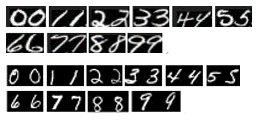 00 11 22 33 44 55
66 77 88 99
0 0 1 1 2 2 3 3 4 4 5 5
6 6 7 7 8 8 9 9